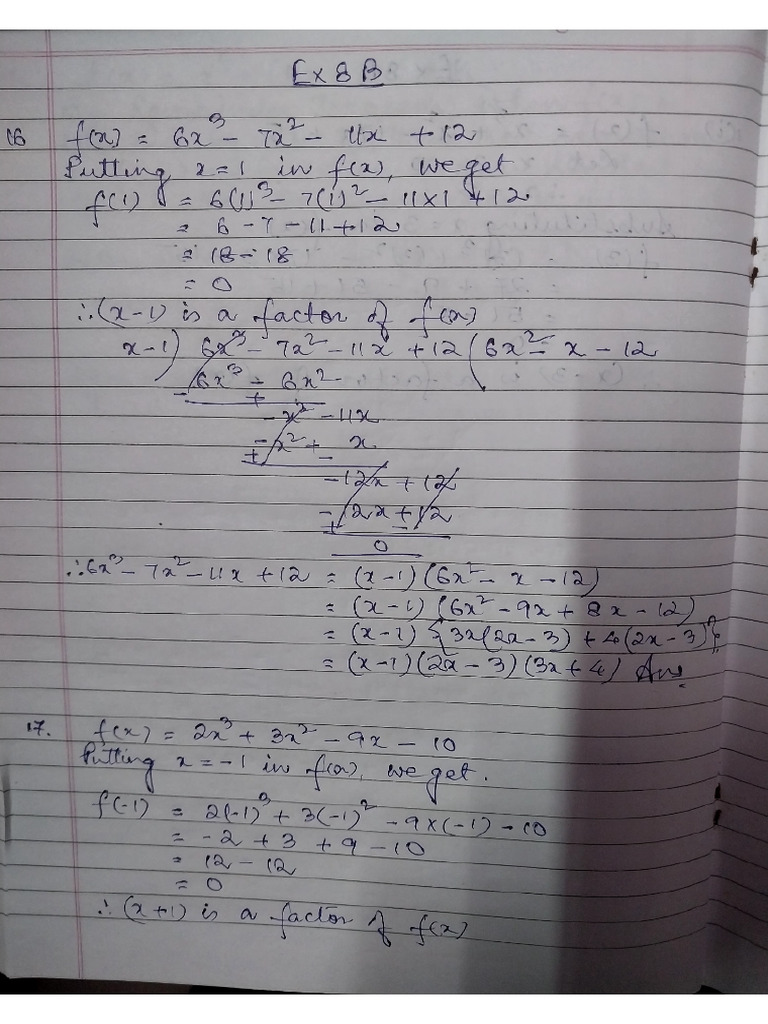 Ex 8 B
16 f(x) = 6x³ - 7x² - 11x + 12
Putting x = 1 in f(x), we get
f(1) = 6(1)³ - 7(1)² - 11×1 + 12
= 6 - 7 - 11 + 12
= 18 - 18
= 0
∴ (x-1) is a factor of f(x)
x-1) 6x³ - 7x² - 11x + 12 (6x² - x - 12
6x³ - 6x²
- +
- x² - 11x
- x² + x
+ -
- 12x + 12
- 12x + 12
+ -
0
∴ 6x³ - 7x² - 11x + 12 = (x-1) (6x² - x - 12)
= (x-1) (6x² - 9x + 8x - 12)
= (x-1) {3x(2x-3) + 4(2x-3)}
= (x-1) (2x-3) (3x+4) Ans
17. f(x) = 2x³ + 3x² - 9x - 10
Putting x = -1 in f(x), we get.
f(-1) = 2(-1)³ + 3(-1)² - 9×(-1) - 10
= -2 + 3 + 9 - 10
= 12 - 12
= 0
∴ (x+1) is a factor of f(x)